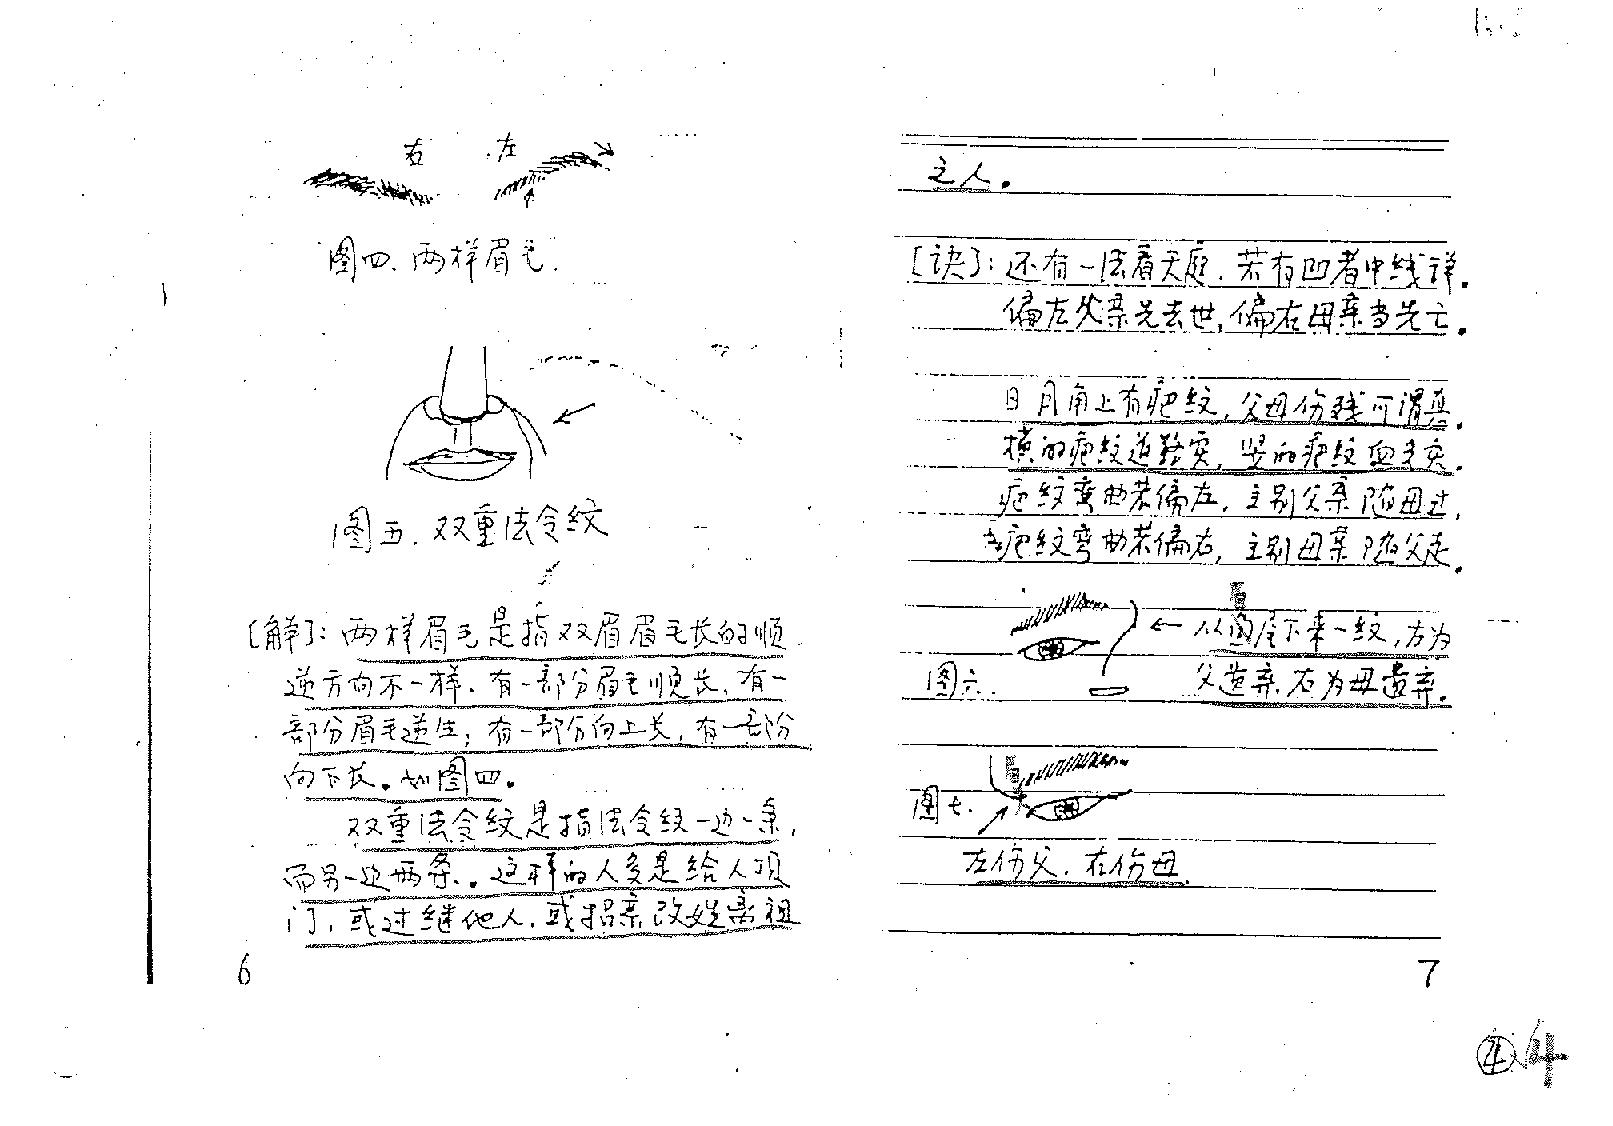 右 左
图四、两样眉毛.
图五.双重法令纹
[解]:两样眉毛是指双眉眉毛长的顺
逆方向不一样.有一部分眉毛顺长,有一
部分眉毛逆生;有一部分向上长,有一部份
向下长.如图四.
双重法令纹是指法令纹一边一条,
而另一边两条.这样的人多是给人顶
门,或过继他人.或招亲改姓离祖
6
之人.
[诀]:还有一法看天庭.若有凹者中线详.
偏左父亲先去世,偏右母亲当先亡.
日月角上有疤纹,父母伤残可谓真.
横的疤纹道路突,竖的疤纹血多突.
疤纹弯曲若偏左,主别父亲随母过,
疤纹弯曲若偏右,主别母亲随父走.
从眉尾下来一纹,左为
图六.
父遗弃.右为母遗弃.
图七.
左伤父.右伤母.
7
4